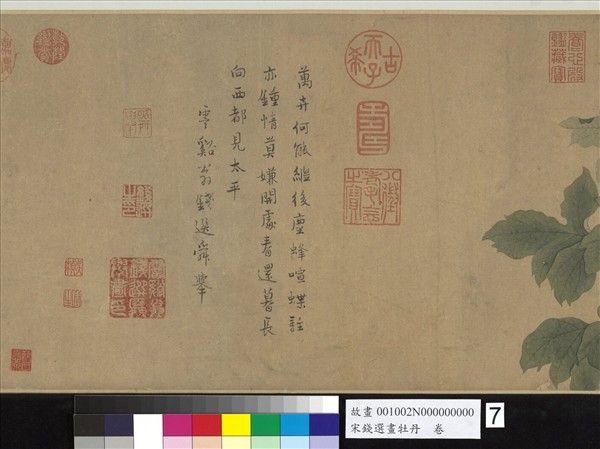 古希天子
八徵耄念之寶
萬卉何能繼後塵蜂喧蝶駐
亦鍾情莫嫌開處春還暮長
向西都見太平
霅谿翁錢選舜舉
故畫 001002N000000000
宋錢選畫牡丹 卷
7